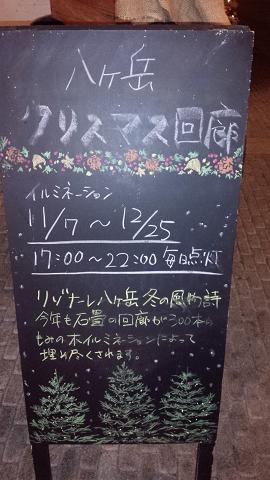 八ヶ岳
クリスマス回廊
イルミネーション
11/7〜12/25
17:00〜22:00 毎日点灯
リゾナーレ八ヶ岳 冬の風物詩
今年も石畳の回廊が300本の
もみの木イルミネーションによって
埋め尽くされます。